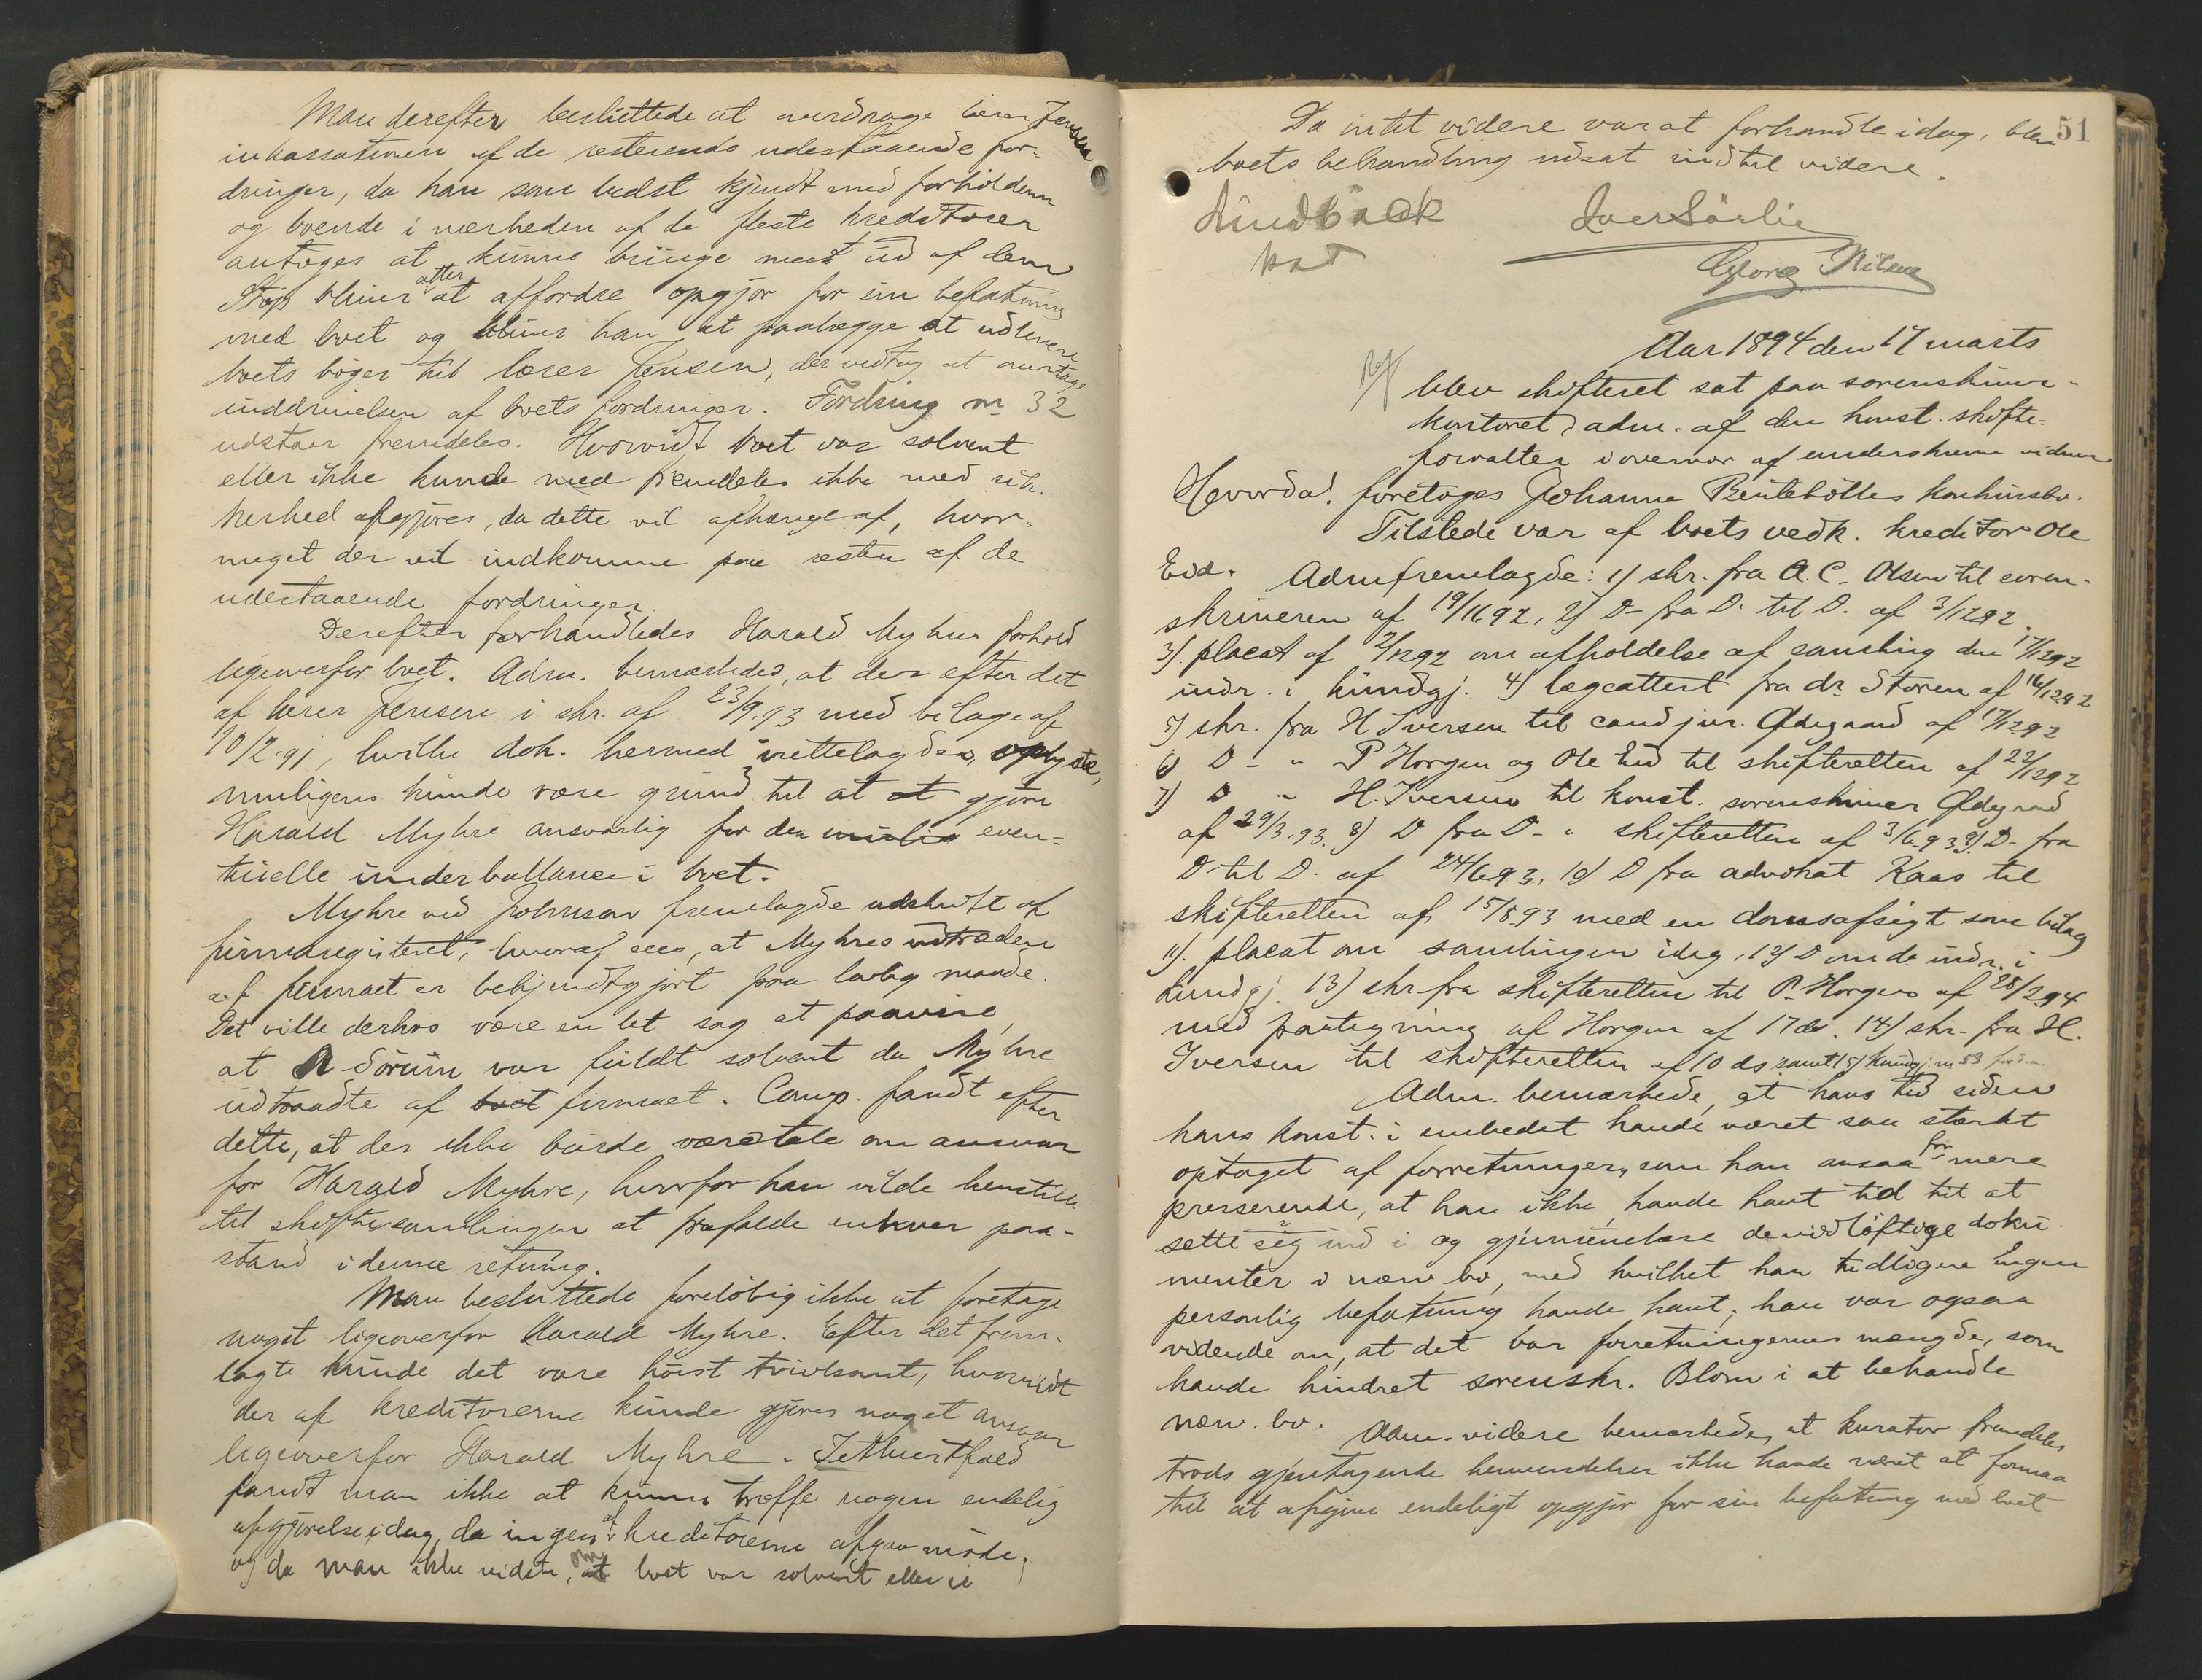 Man derefter besluttede at overdrage lærer Jensen
inkassationen af de resterende udestaaende for-
dringer, da han som bedst kjendt med forholdene
og boende i nærheden af de fleste kreditorer
antoges at kunne bringe mest ud af dem
bliver atter at affordre opgjør for sin befatning
med boet og bliver han at paalægge at udlevere
boets bøger til lærer Jensen, der vedtog at overtage
inddrivelsen af boets fordringer. Fordring nr 32
udstaar fremdeles. Hvorvidt boet var solvent
eller ikke kunde med fremdeles ikke med sik-
kerhed afgjøres, da dette vil afhænge af, hvor-
meget der vil indkomme paa resten af de
udestaaende fordringer.
Derefter forhandledes Harald Myhres forhold
ligeoverfor boet. Adm. bemærkedes, at der efter det
af lærer Jensen i skr. af 23/9.93 med bilage af
10/2.91, hvilke dok. hermed irettelagdes, oplyste,
muligens kunde være grund til at at gjøre
Harald Myhre ansvarlig for den mulig even-
tuelle underballance i boet.
Myhre ved Johnson fremlagde udskrift af
firmaregisteret, hvoraf sees, at Myhres udtræden
af firmaet er bekjendtgjort paa lovlig maade.
Det ville derhos være en let sag at paavise,
at A Sørum var fuldt solvent da Myhre
udtraadte af boet firmaet. Comp. fandt efter
dette, at der ikke burde være tale om ansvar
for Harald Myhre, hvorfor han vilde henstille
til skiftesamlingen at frafalde enhver paa-
stand i denne retning.
Man besluttede foreløbig ikke at foretage
noget ligeoverfor Harald Myhre. Efter det frem-
lagte kunde det være høist tvivlsomt, hvorvidt
der af kreditorerne kunde gjøres noget ansvar
ligeoverfor Harald Myhre. I ethvertfald
fandt man ikke at kunne træffe nogen endelig
afgjørelse idag, da ingen af kreditorerne afgav møde,
og da man ikke vidste, om at boet var solvent eller ei
51
Da intet videre var at forhandle idag, blev
boets behandling udsat indtil videre.
Lindbäck
kst
Iver Sörlie
Georg Nilsen
Aar 1894 den 17 marts
blev skifteret sat paa sorenskriver-
kontoret, adm. af den konst. skifte-
forvalter i overvær af underskrevne vidner
Hvorda! foretoges Johanne Bentebølles konkursbo.
Tilstede var af boets vedk. kreditor Ole
Eid. Adm fremlagde: 1) skr. fra A. C. Olsen til soren-
skriveren af 19/11 92, 2) D- fra D. til D. af 3/12 92.
3) placat af 2/12 92 om afholdelse af samling den 17/12 92
indr. i kundgj. 4) lægeattest fra dr. Støren af 16/12 92
5) skr. fra H Iversen til cand jur. Ødegaard af 17/12 92
6) D - " P Horgen og Ole Eid til skifteretten af 22/12 92
7) D " H. Iversen til konst. sorenskriver Ødegaard
af 29/3.93. 8) D fra D- " skifteretten af 3/6.93 9) D- fra
D- til D. af 24/6.93, 10) D fra advokat Kaas til
skifteretten af 15/8.93 med en domsafsigt som bilag
11) placat om samlingen idag, 12) D om do indr. i
kundgj. 13) skr fra skifteretten til P. Horgen af 28/2 94
med paategning af Horgen af 17 ds. 14) skr. fra H.
Iversen til skifteretten af 10 ds samt 15) kundgj. nr 53
Adm. bemærkede, at hans tid siden
hans konst. i embedet havde været saa stærkt
optaget af forretninger, som han ansaa for mere
presserende, at han ikke havde havt tid til at
sette sig ind i og gjennemlæse de vidløftige doku-
menter i nærv. bo, med hvilket han tidligere ingen
personlig befatning havde havt; han var ogsaa
vidende om, at det var forretningernes mængde, som
havde hindret sorenskr. Blom i at behandle
nærv. bo. Adm. videre bemærkede, at kurator fremdeles
trods gjentagende henvendelser ikke havde været at formaa
til at afgive endeligt opgjør for sin befatning med boet